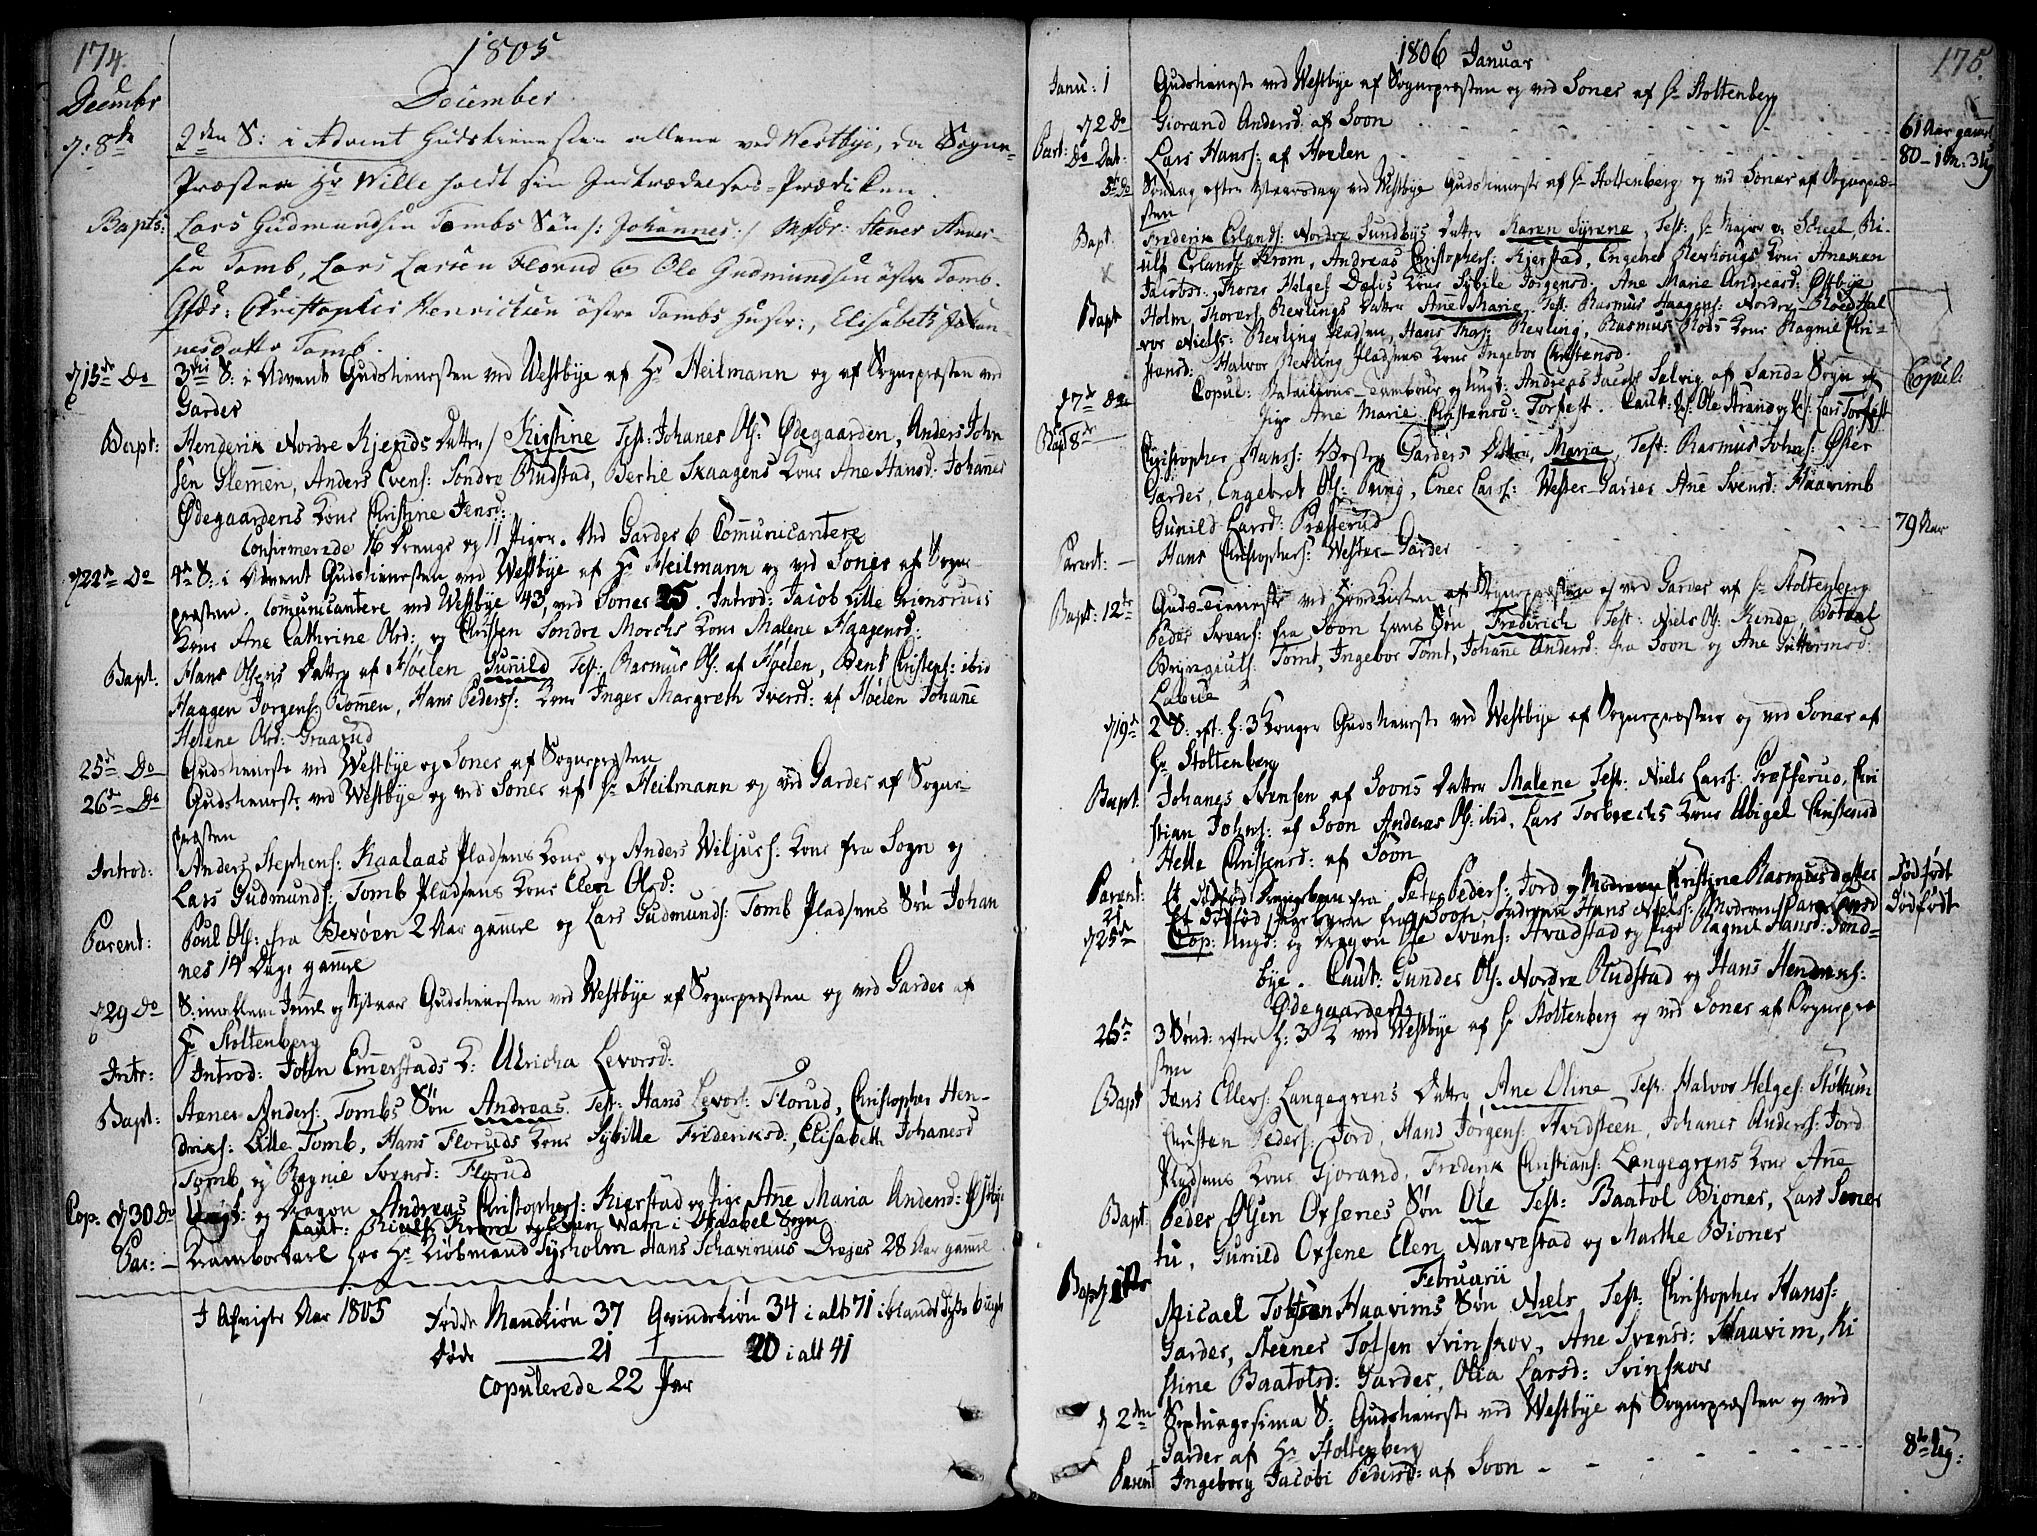 174.
1805
Decembr
December
d: 8de
2den S: i Advent Gudstienesten allene ved Westbye, da Sogne-
Præsten Hr Wille holdt sin Indtrædelses-Prædiken
Bapts: Lars Gudmundsen Tombs Sön /: Johannes :/ Stener Ander-
sen Tomb, Lars Larsen Florud og Ole Gudmundsen östre Tomb.
Christopher Henrichsen östre Tombs Hustr:, Elisabeth Johan-
nesdatter Tomb.
d 15de Do 3die S: i Advent Gudstienesten ved Westbye af Hr Heilmann og af Sognepræsten ved
Garder
Bapt: Henderik Nordre Kjernds Datter / Kistine Test: Johanes Ols: Ødegaarden, Anders John
sen Glemmen, Anders Evens: Søndre Rudstad, Bertil Skaagens Kone Ane Hansd: Johannes
Ødegaardens Kone Christine Jensd:
Confirmerede 16 Drenge og 11 Piger. Ved Garder 6 Communicantere
d 22de Do 4de S: i Advent Gudstienesten ved Westbye af Hr Heilmann og ved Soner af Sogne-
præsten. Communicantere ved Westbye 43, ved Soner 25. Introd: Jacob Lille Grimsruds
Kone Ane Cathrine Olsd: og Christen Søndre Morchs Kone Malene Haagensd:
Bapt: Hans Olsens Datter af Høelen Gunild Test: Rasmus Ols: af Høelen, Bent Christoph: ibid
Haagen Jørgens: Bommen, Hans Peders: Kone Inger Margreth Iversd: af Høelen Johanne
Helene Olsd: Graarud
25de Do Gudstieneste ved Westbye og Soner af Sognepræsten
26de Do Gudstieneste ved Westbye og ved Soner af Hr Heilmann og ved Garder af Sogne-
præsten
Introd: Anders Stephens: Kaalaas Pladsens Kone og Anders Wiljurs: Kone fra Sogn og
Lars Gudmunds: Tomb Pladsens Kone Elen Olsd:
Parent: Poul Ols: fra Bevøen 2 Aar gamel og Lars Gudmunds: Tomb Pladsens Søn Johan
nes 14 Dage gamel
d 29 Do S: imellem Juul og Nytaar Gudstienesten ved Westbye af Sognepræsten og ved Garder af
Hr Stoltenberg
Intr: Introd: John Emmerstads K: Ulricha Levorsd:
Bapt: Stener Anders: Tombs Søn Andreas. Test: Hans Levors: Florud, Christopher Hen-
driks: Lille Tomb, Hans Floruds Kone Sybille Frideriksd:, Elisabeth Johanesd
Tomb og Ragnie Svensd: Florud
Cop: d 30 Do Ungk: og Dragon Andreas Christophers: Kierstad og Pige Anne Maria Andersd: Østbye
Caut: Krom og Sogn
Par: — Kramborkarl hos Hr Kiøbmand Syrholm Hans Schavinius Drøjer 28 Aar gamel
I Afvigte Aar 1805 Fødde Mandkiøn 37 Qvindekiøn 34 i alt 71 iblandt disse 6 uægte
Døde —— 21 —— 20 i alt 41
Copulerede 22 Par
175.
1806 Januar
Janu: 1 Gudstieneste ved Westbye af Sognepræsten og ved Soner af Hr Stoltenberg
d 2 Do Giorand Andersd: af Soon 61 Aar gamel
Part: Do Dat. Lars Hans: af Hoelen 80 – 1 M: 3 Ug
5te Do Søndag efter Nyaarsdag ved Westbye Gudstieneste af Hr Stoltenberg og ved Soner af Sognepræ-
sten
Bapt Frederik Erlands: Nordre Sundbys Datter Karen Syrene, Test: Hr Major v. Scheel, Ri-
ulf Erlands: Krom, Andreas Christophers: Kjerstad, Engebret Revhougs Kone Anemen
Jacobsd:, Thorer Helges: Dælis Kone Sybile Jørgensd:, Ane Marie Andreasd: Østbye
Bapt Holm, Thorers Revlings Datter Anne Marie, Test: Rasmus Haagens: Nordre Røed Hal
vor Niels: Revling Pladsen, Hans Thors: Revling, Rasmus Røds Kone Ragnie Chri-
stensd: Halvor Revling Pladsens Kone Ingebor Christensd.
d 7de Do Copul: Bataillons-Tambour og Ungk: Andreas Jacobs: Selvig af Sande Sogn og Copul:
Pige Ane Marie Christensd: Torfest. Caut: Ole Strand og Lars Torfest
Bapt 8de Christopher Hans: Vestre Garders Datter, Maria, Test: Rasmus Johns: Øster
Garder, Engebret Ols: Pring, Ener Lars: Wester-Garder Ane Svensd: Haavimb
Gunild Larsd: Præsterud
Parent: — Hans Christophers: Wester-Garder 79 Aar
Bapt: 12te Guds-Tieneste ved HovedKirken af Sognepræsten og ved Garder af Hr Stoltenberg
Peder Svens: fra Soon hans Søn Frederich Test: Niels Ols: Kinde, Botvel
Bryngiuls: Tomt, Ingebor Tomt, Johanne Andersd: fra Soon og Ane Guttormsd:
Labue
d 19de 2 S: eft: H: 3 Konger Gudstieneste ved Westbye af Sognepræsten og ved Soner af
Hr Stoltenberg
Bapt Johanes Svensen af Soons Datter Malene Test: Niels Lars: Præsterud, Chri
stian Johns: af Soon Anders Ols: ibid, Lars Torbæchs Kone Abigel Christensd
Helle Christensd: af Soon
Parent: Et dødfød Drengebarn fra Peter Peders: Jord og Moderen Christine Rasmusdatter Dødfødt
21 Et dødfød Pigebarn fra Soon Faderen Hans Niels: Moderen Larsd Dødfødt
d 25de Cop: Ungk: og Dragon Ole Svens: Hvidstad og Pige Ragnil Hansd: Sond-
bye. Caut: Gunder Ols: Nordre Rudstad og Hans Hendriks:
Ødegaarden
26de 3 Sønd: efter H: 3 K ved Westbye af Hr Stoltenberg og ved Soner af Sognepræ
sten
Bapt Jens Ellers: Langegrens Datter, Ane Oline Test: Halvor Helges: Støttum
Christen Peders: Jord, Hans Jørgens: Hvidsteen, Johanes Anders: Jord
Pladsens Kone Gjorand, Frederik Christians: Langegrens Kone Ane
Bapt: Peder Olsen Oxsenes Søn Ole Test: Baatol Bioner, Lars Soner
tu, Gunild Oxsene Elen Narvestad og Marthe Bioner
Februarii
Bapt d 1ste Micael Totsen Haavims Søn Niels, Test: Christopher Hans:
Garder, Steener Totsen Svinskov, Ane Svensd: Haavim, Ki
stine Baatolsd: Garder, Olia Larsd: Svinskov
d 2den Septuagesima S: Gudstieneste ved Westbye af Sognepræsten og ved
Garder af Hr Stoltenberg
Parent Ingeborg Jacobi Pedersd: af Soon 8te Ug: